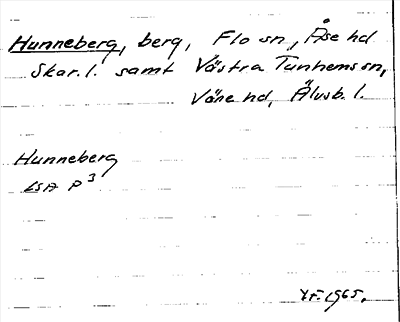 Hunneberg, berg, Flo sn, Åse hd
Skar.l. samt Västra Tunhems sn,
Väne hd, Älvsb. l.
Hunneberg
LSA P3
1965.